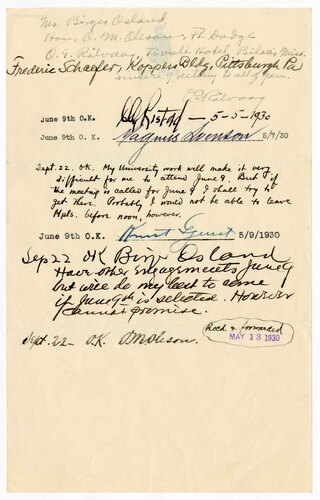 Mr. Birger Osland
Hon. O. M. Oleson, Ft. Dodge
O. E. Rölvaag, Tivoli Hotel, Biloxi, Miss.
Frederic Schaefer, Koppers Bldg, Pittsburgh Pa
Sincere greeting to all of you.
Rölvaag
June 9th O.K. Ristad — 5-5-1930
June 9th O.K. Magnus Swenson 5/7/30
Sept. 22. OK. My University work will make it very
difficult for me to attend June 9. But if
the meeting is called for June 9 I shall try to
get there. Probably I would not be able to leave
Mpls. before noon, however.
June 9th O.K. Knut Gjerset 5/9/1930
Sep 22 OK Birger Osland
Have other engagements June 9
but will do my best to come
if June 9th is selected. However
cannot promise.
Sept. 22 — O.K. O M Oleson.
Recd & forwarded
MAY 13 1930